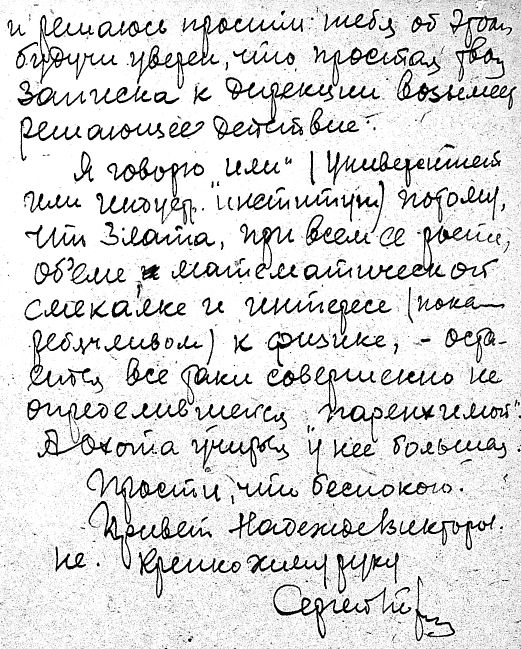 и решаюсь просить тебя об этом
будучи уверен, что простая твоя
записка к дирекции возымеет
решающее действие.
Я говорю "или" (университет
или индустр. институт) потому,
что Злата, при всем ее росте,
об'еме, математической
смекалке и интересе (пока
ребячливом) к физике, - оста-
ется все таки совершенно не
определившейся "паренхимой".
А охота учиться у нее большая.
Прости, что беспокою.
Привет Надежде Викторов-
не. Крепко жму руку
Сергей